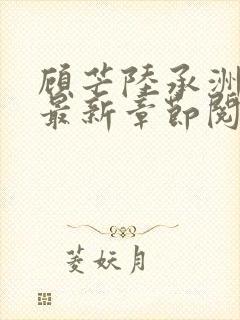 顾芒陆承洲
最新章节阅
菱妖月